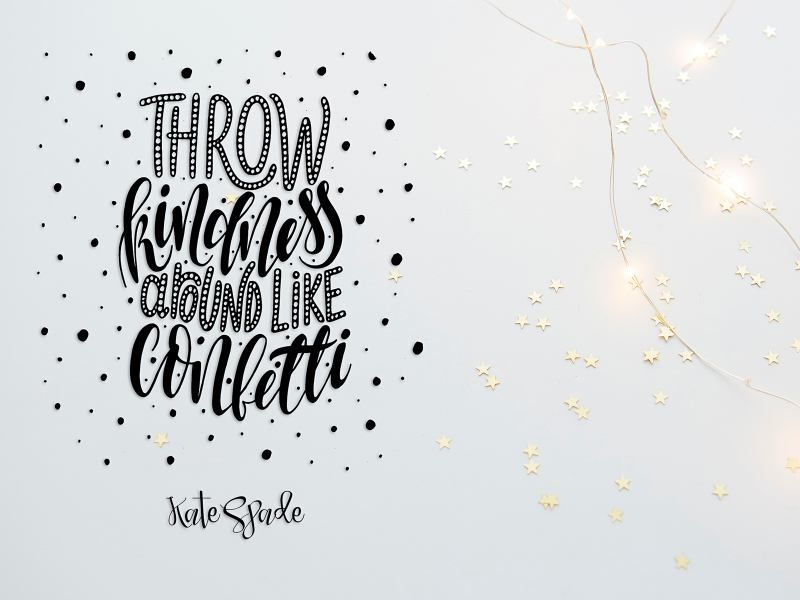 THROW
kindness
aROUND LIKE
Confetti
Kate Spade